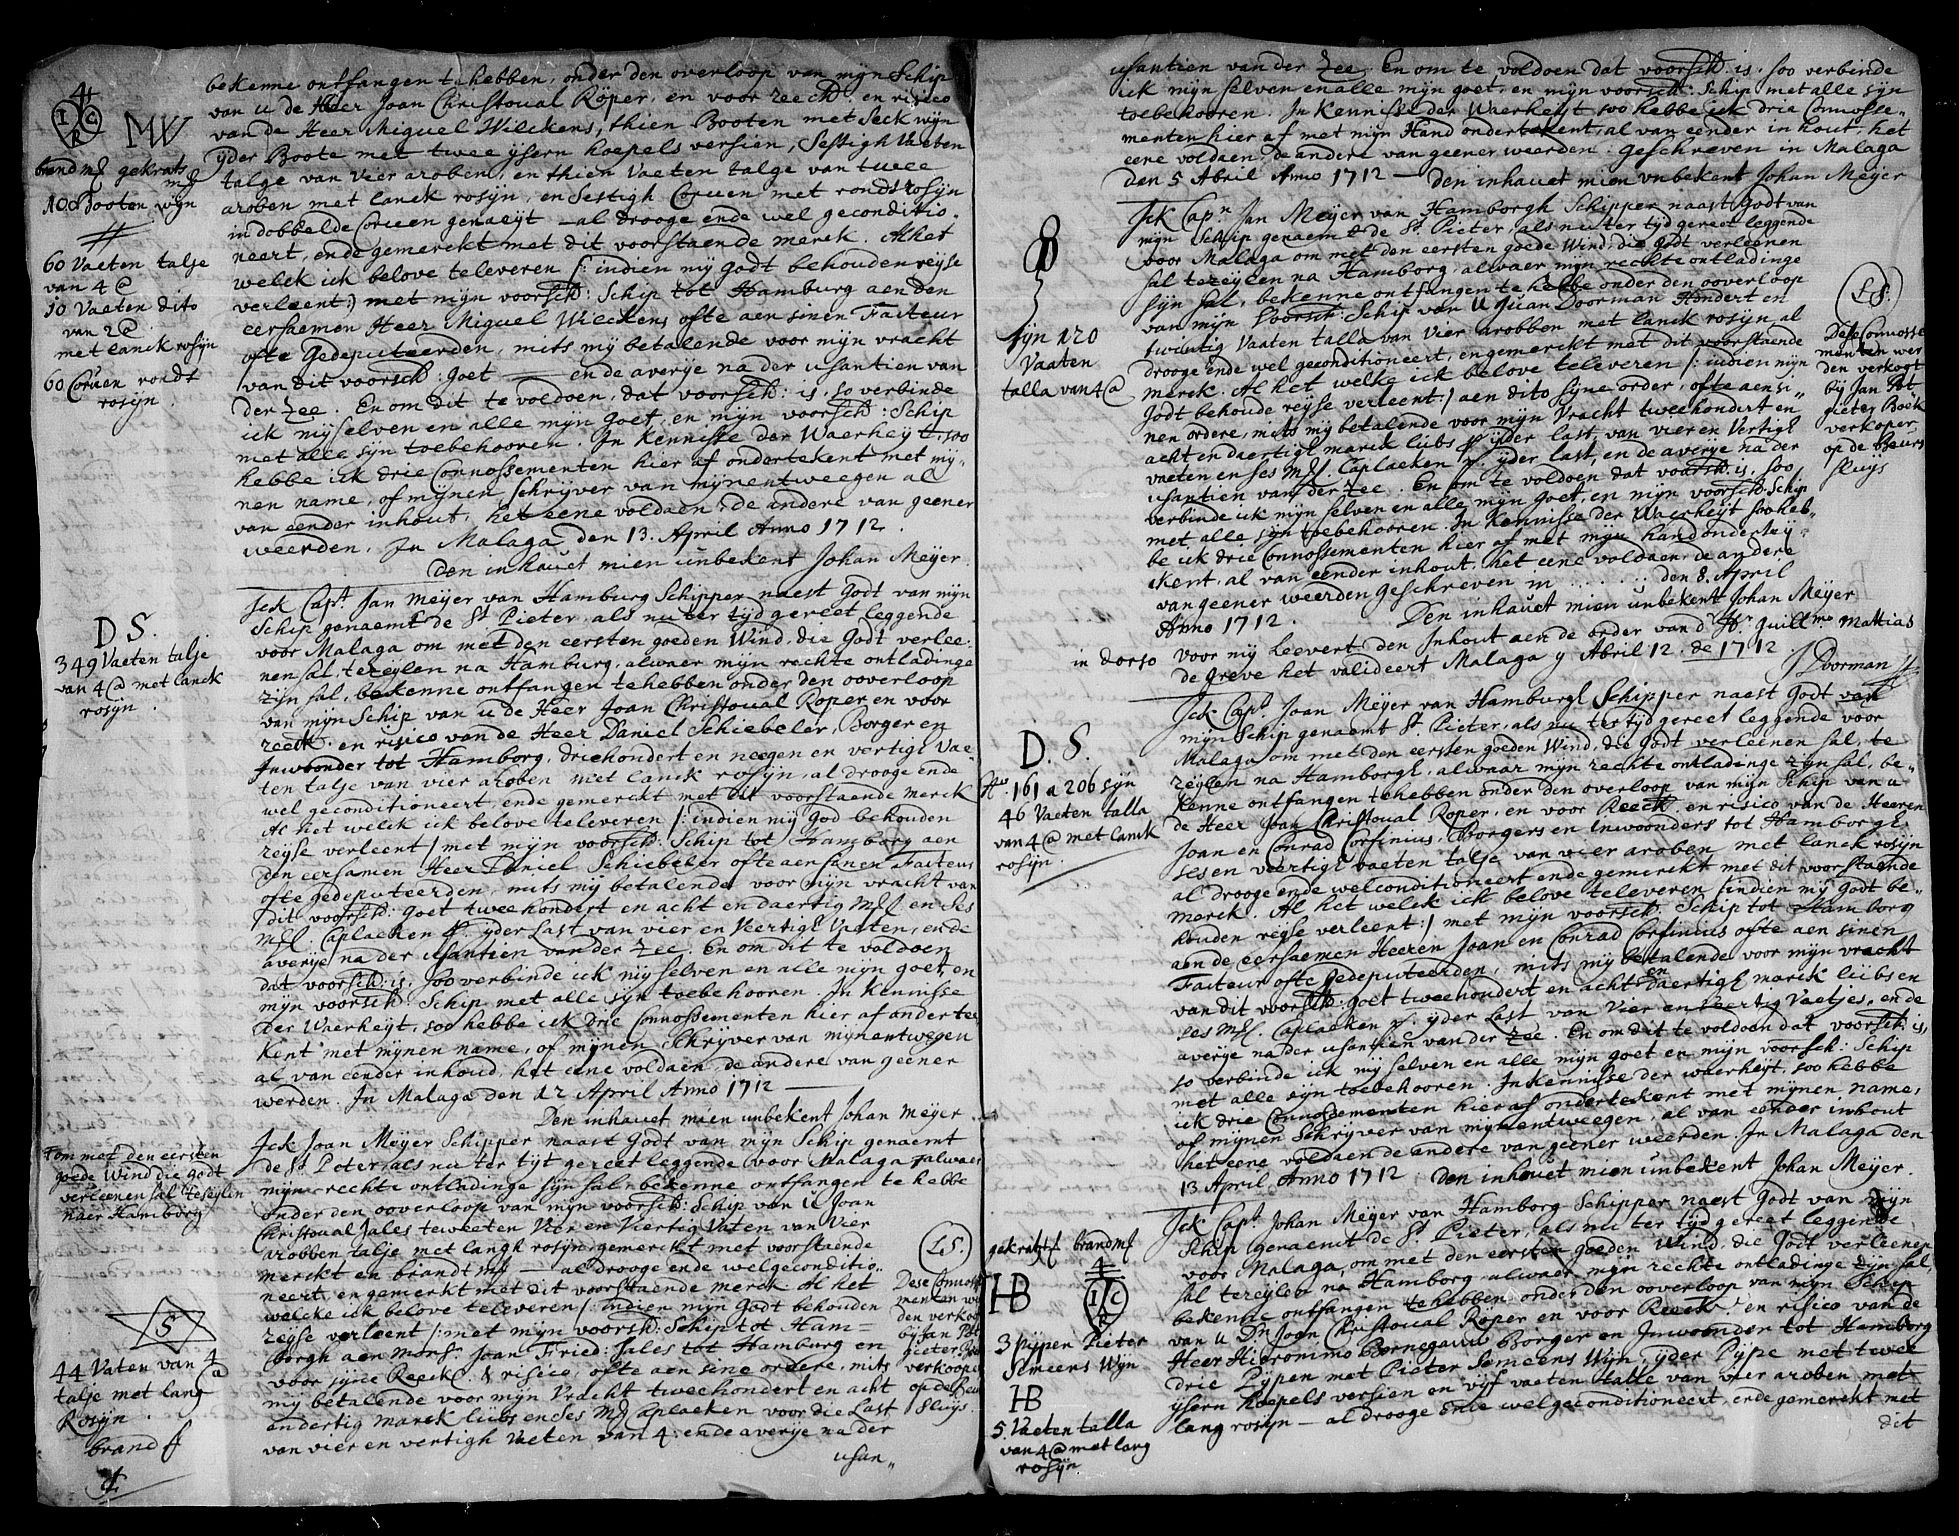 4
I C
R
MW
brand m/ gekrats
m/
10 Booten wijn
60 Vaeten talje
van 4 @
10 Vaeten dito
van 2 @
met lanck rosijn
60 Coruen rondt
rosijn.
bekenne ontfangen te hebben, onder den overloop van mijn Schip
van u de Heer Joan Christoual Röper, en voor reeck: en risico
van de Heer Miguel Wilckens, thien Booten met Seck wijn
yder Boote met twee ysern hoepels versien, Sestigh Vaeten
talge van vier aroben, en thien Vaeten talge van twee
aroben met lanck rosijn, en Sestigh Coruen met rondt rosijn
in dobbelde Coruen genaeijt — al drooge ende wel geconditio-
neert, ende gemerckt met dit voorstaende merck. Al het
welck ick belove televeren /: indien mij godt behouden reijse
verleent:/ met mijn voorsch: Schip tot Hamburg aen den
eersaemen Heer Miguel Wilckens ofte aen sinen Facteur
ofte Gedeputeerden, mits mij betalende voor mijn vracht
van dit voorsch: goet — ende averye na der usantien van
der Zee. En om dit te voldoen, dat voorsch: is, so verbinde
ick mijselven en alle mijn goet, en mijn voorsch: Schip
met alle sijn toebehooren. In Kennisse der Waerheijt, soo
hebbe ick drie Connossementen hier af ondertekent met mij-
nen name, of mijnen schrijver van mijnentweegen al
van eender inhout, het eene voldaen, de andere van geener
weerden. In Malaga den 13. April Anno 1712.
den inhauet mien unbekent Johan Meyer
D S.
349 Vaeten talje
van 4 @ met lanck
rosijn.
Ick Capt. Jan Meijer van Hamburg Schipper naest Godt van mijn
Schip genaemt de St Pieter, als nu ter tijd gereet leggende
voor Malaga om met den eersten goeden Wind, die Godt verlee-
nen sal, te zeylen na Hamburg, alwaer mijn rechte ontladinge
zijn sal, bekenne ontfangen te hebben onder den ooverloop
van mijn Schip van u de Heer Joan Christoual Roper en voor
reeck. en risico van de Heer Daniel Schiebeler, Borger en
Inwoonder tot Hamborg, driehondert en neegen en vertigh Vae-
ten talje van vier aroben met lanck rosijn, al drooge ende
wel geconditioneert, ende gemerckt met dit voorstaende merck
Al het welck ick belove televeren /: indien mij God behouden
reijse verleent / met mijn voorsch: Schip tot Hamborg aen
den eersamen Heer Daniel Schiebeler ofte aen sinen Facteur
ofte gedeputeerden, mits mij betalende voor mijn vracht van
dit voorsch: goet tweehondert en acht en daertig m/l en ses
m/l. Caplaecken p. yder Last van vier en Veertigh Vaeten, ende
averije na der usantien van der Zee. En om dit te voldoen
dat voorsch: is, soo verbinde ick mijselven en alle mijn goet, en
mijn voorsch: Schip met alle sijn toebehooren. In Kennisse
der Waerheijt, soo hebbe ick drie Connossementen hier af onderte-
kent met mijnen name, of mijnen Schrijver van mijnentwegen
al van eender inhoud, het eene voldaen, de andere van geener
werden. In Malaga den 12 April Anno 1712 —
Den inhauet mien unbekent Johan Meyer
Fom met den eersten
goede Wind die godt
verleenen sal te seylen
naer Hamborg
S
44 Vaten van 4 @
talje met lang
Rosijn.
brand
Ick Joan Meyer Schipper naast Godt van mijn Schip genaemt
de St Pieter, als nu ter tijt gereet leggende voor Malaga F alwaer
mijn rechte ontladinge sijn sal, bekenne ontfangen te hebbe
onder den ooverloop van mijn voorsch: Schip van u Joan
Christoual Jales te weeten Vier en Viertig Vaten van Vier
arobben talje met langh rosijn, gemerckt met voorstaende
merckt en brandt m/ — al drooge ende welgeconditio-
neert, en gemerkt met dit voorstaende merck. Al het
welcke ick belove televeren /: indien mijn Godt behouden
reijse verleent /: met mijn voorsch: Schip tot Ham-
borgh aen Mons: Joan Fried: Jales tot Hamburg en
voor syne Reeck. & risico, ofte aen sine ordere, mits
mij betalende voor mijn Vracht tweehondert en acht
endertig marck lübs en ses m/ Caplaeken voor die Last
van vier en vertigh Vaeten van 4: ende averije na der
usan-
LS.
Dese Connoss
menten wer
den verkog
bij Jan Pot
pieter Boe
verkooper
op de Beu
Sluys.
usantien van der Zee. En om te voldoen dat voorsch: is, soo verbinde
ick mijn selven en alle mijn goet, en mijn voorsch: Schip met alle syn
toebehooren. In Kennisse der Waerheijt soo hebbe ick dria Connosse-
menten hier af met mijn Hand ondertekent, al van eender inhout, het
eene voldaen, de andere van geener weerden. Geschreven in Malaga
den 5 Abril Anno 1712 — Den inhauet mien unbekent Johan Meyer
sijn 120
Vaeten
talla van 4 @
Ick Capn Jan Meijer van Hamborgh Schipper naast Godt van
mijn Schip genaemd de St. Pieter, als nu ter tijd gereet leggende
voor Malaga om met den eersten goede Wind, die godt verleenen
sal te zeylen na Hamborg, alwaer mijn rechte ontladinge
sijn sal, bekenne ontfangen te hebbe onder den ooverloop
van mijn Voorsch: Schip van u Juan Doorman Hondert en
twintig Vaeten talla van Vier arobben met lanck rosijn, al
drooge ende wel geconditioneert, en gemerckt met dit voorstaende
merck. Al het welke ick belove televeren /: indien mijn
Godt behoude reijse verleent:/ aen dito syne order, ofte aen si-
nen ordere, mits mij betalende voor mijn Vracht tweehondert en
acht en daertigl marck lübs p. yder last, van vier en Vertigl
vaeten en ses m/l. Caplaeken p. yder last, en de averye na der
usantien van der Zee. En om te voldoen dat voorsch: is, soo
verbinde ick mijn selven en alle mijn goet, en mijn voorsch: Schip
met alle sijn toebehooren. In Kennisse der Waerheijt soo heb-
be ick drie Connossementen hier af met mijn hand ondertey-
kent, al van eender inhout, het eene voldaen, de andere
van geener weerden Geschreven in . . . . . . den 8. April
Anno 1712. Den inhauet mien unbekent Johan Meyer
in dorso
voor mij Leevert den Inhout aen de order van dHr Guillmo Mattias
de Greve het valideert Malaga y Abril 12 de 1712. J Doorman
LS.
Dese Connosse
menten wer
den verkogt
bij Jan Pot
pieter Boek
verkoper
op de Beurs
sluys
D. S.
No. 161 a 206 sijn
46 Vaeten talla
van 4 @ met lanck
rosijn.
Ick Capt. Joan Meijer van Hamburgl Schipper naest Godt van
mijn Schip genaemt St. Pieter, als nu ter tijd gereet leggende voor
Malaga om met den eersten goeden Wind, die Godt verleenen sal, te
zeijlen na Hamborgl, alwaar mijn rechte ontladinge zijn sal, be-
kenne ontfangen te hebben onder den overloop van mijn Schip van u
de Heer Joan Christoual Roper, en voor Reeck. en risico van de Heeren
Joan en Conrad Corfinius, Borgers en Inwoonders tot Hamborgl
ses en veertigl vaeten talje van vier aroben met lanck rosijn
al drooge ende welconditioneert ende gemerckt met dit voorstaende
merck. Al het welck ick belove televeren /: indien mij Godt be-
houden reyse verleent:/ met mijn voorsch: Schip tot Hamborg
aen de eersaemen Heeren Joan en Conrad Corfinius ofte aen sinen
Facteur ofte gedeputeerden, mits mij betalende voor mijn vracht
van dit voorsch: goet tweehondert en acht en daertigl marck lübs en
ses m/l. Caplaeken p. yder Last van Vier en Veertig Vaetjes, ende
averije na der usantien van der Zee. En om dit te voldoen dat voorsch is,
so verbinde ick mijselven en alle mijn goet en mijn voorsch: Schip
met alle sijn toebehooren. In Kennisse der waerheijt, soo hebbe
ick drie Connossementen hier af ondertekent met mijnen name,
of mijnen Schrijver van mijnentweegen, al van eender inhout
het eene voldaen de andere van geener weerden. In Malaga den
13 April Anno 1712. Den inhauet mien unbekent Johan Meyer.
gekratst brand m/
HB
4
I C
R
3 pijpen Pieter
Semeens Wijn
HB
5. Vaeten talla
van 4 @ met lang
rosijn
Ick Capt. Johan Meijer van Hamborg Schipper naest Godt van mijn
Schip genaemt de St. Pieter, als nu ter tijd gereet leggende
voor Malaga, om met den eersten goeden Wind, die Godt verleenen
sal te zeylen na Hamborg, alwaar mijn rechte ontladinge zijn sal,
bekenne ontfangen te hebben onder den overloop van mijn Schip
van u Dn Joan Christoual Röper en voor Reeck. en risico van de
Heer Hieronimo Bornegauw Borger en Inwoonder tot Hamborg
drie Pypen met Pieter Semeens Wijn, yder Pype met twee
ysern Hoepels versien en vijf vaeten talle van vier aroben met
lang rosijn — al drooge ende welgeconditioneert, ende gemerckt met
dit